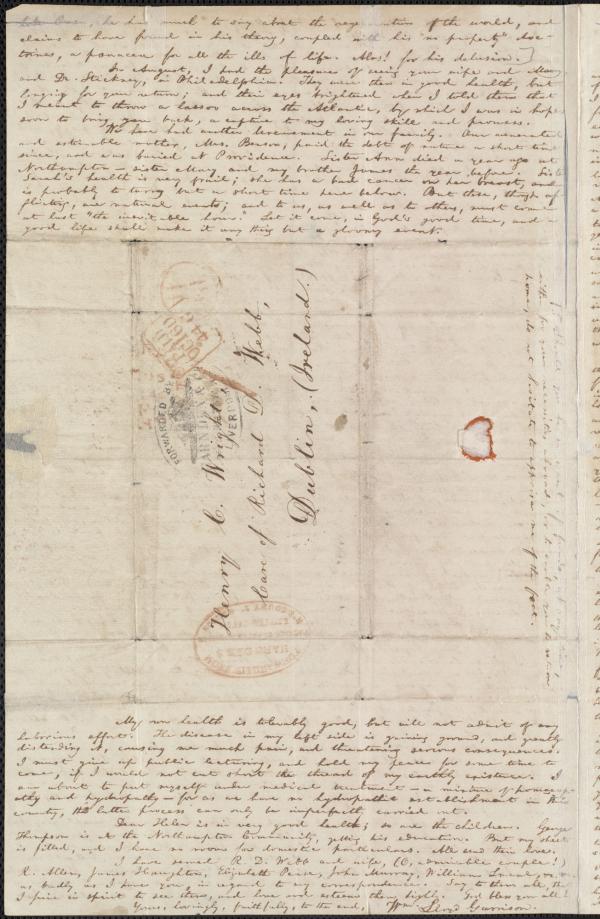 like Owen, he has much to say about the regeneration of the world, and
claims to have found in his theory, coupled with his "no property" doc-
trines, a panacea for all the ills of life. Alas! for his delusion.]
In August, I had the pleasure of seeing your wife and Mary
and Dr. Stickney, in Philadelphia. They were then in good health, but
longing for your return; and their eyes brightened when I told them that
I meant to throw a lasso across the Atlantic, by which I was in hope
soon to bring you back, a captive to my loving skill and prowess.
We have had another bereavement in our family. Our venerated
and estimable mother, Mrs. Benson, paid the debt of nature a short time
since, and was buried at Providence. Sister Ann died a year ago at
Northampton — sister Mary and my brother James the year before. Sister
Sarah's health is very frail; she has a cancer on her breast, and
is probably to tarry but a short time here below. But these, though af-
flicting, are natural events; and to us, as well as to others, must come
at last "the inevitable hour." Let it come, in God's good time, and a
good life shall make it any thing but a gloomy event.
Henry C. Wright,
Care of Richard D. Webb,
Dublin, (Ireland.)
FORWARDED BY
HARNDEN & CO
LIVERPOOL
FORWARDED FROM
HARNDEN'S
home, do not hesitate to apprise me of the fact.
My own health is tolerably good, but will not admit of any
laborious effort. The disease in my left side is gaining ground, and greatly
distending it, causing me much pain, and threatening serious consequences.
I must give up public lecturing, and hold my peace for some time to
come, if I would not cut short the thread of my earthly existence. I
am about to put myself under medical treatment — a mixture of homœop-
athy and hydropathy — for as we have no hydropathic establishment in this
country, the latter process can only be imperfectly carried out.
Dear Helen is in very good health; so are the children. George
Thompson is at the Northampton Community, getting his education. But my sheet
is filled, and I have no room for domestic particulars. All send their loves.
I have served R. D. Webb and wife, (O, admirable couple!)
R. Allen, James Haughton, Elizabeth Pease, John Murray, William Smeal,
as badly as I have you, in regard to my correspondence. Say to them all, that
I am in spirit to see them, and love and esteem them highly. God bless you all!
Yours, lovingly, faithfully, to the end, Wm. Lloyd Garrison.